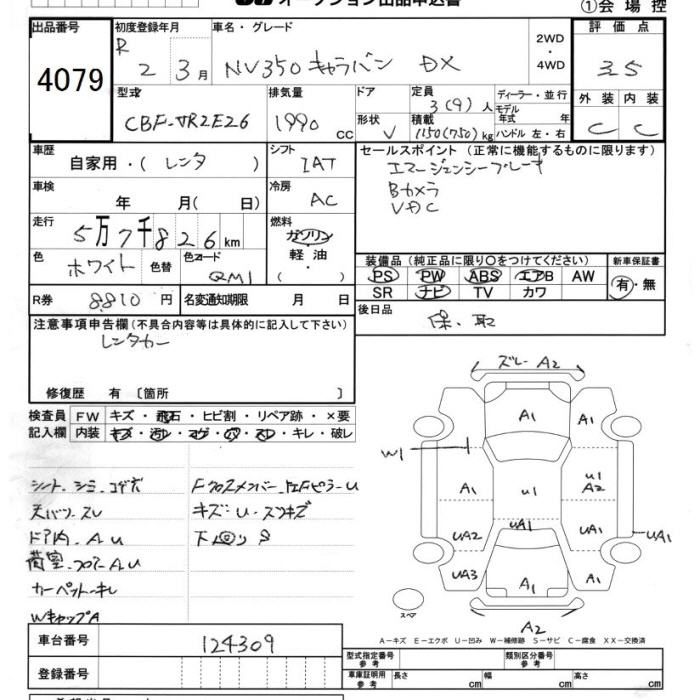 オークション出品申込書
①会場控
出品番号
4079
初度登録年月
R 2 3月
車名・グレード
NV350 キャラバン DX
2WD
・
4WD
評価点
3.5
外装 内装
C C
型式
CBF-VR2E26
排気量
1990 cc
ドア
形状
V
定員
3(9)人
積載
1150(750)kg
ディーラー・並行
モデル
年式 年
ハンドル 左・右
車歴
自家用・(レンタ)
シフト
IAT
車検
年 月(日)
冷房
AC
走行
5万7千826km
燃料
ガソリン
軽油
色
ホワイト
色替
色コード
QM1
R券 8810円
名変通知期限 月 日
セールスポイント (正常に機能するものに限ります)
エマージェンシーブレーキ
Bカメラ
VDC
装備品(純正品に限り○をつけてください)
PS PW ABS エアB AW
SR ナビ TV カワ
新車保証書
有・無
後日品
保、取
注意事項申告欄(不具合内容等は具体的に記入して下さい)
レンタカー
修復歴 有 〔箇所 〕
検査員
記入欄
FW キズ・飛石・ヒビ割・リペア跡・×要
内装 キズ・汚レ・コゲ・穴・スレ・キレ・破レ
シート、シミ、コゲ穴
天バリ、スレ
ドア内、A、U
荷室、フロアーA、U
カーペットキレ
WキャップA
FクロスメンバーU
キズ:U・スリキズ
下回リ S
ズレ-A2
A1
A1
W1
A1
U1
U1
A2
UA2
UA1
UA1
UA1
UA3
A1
A1
スペア
A2
A-キズ E-エクボ U-凹み W-補修跡 S-サビ C-腐食 XX-交換済
車台番号
124309
登録番号
型式指定番号
参考
類別区分番号
参考
車庫証明用
参考
長さ cm
幅 cm
高さ cm